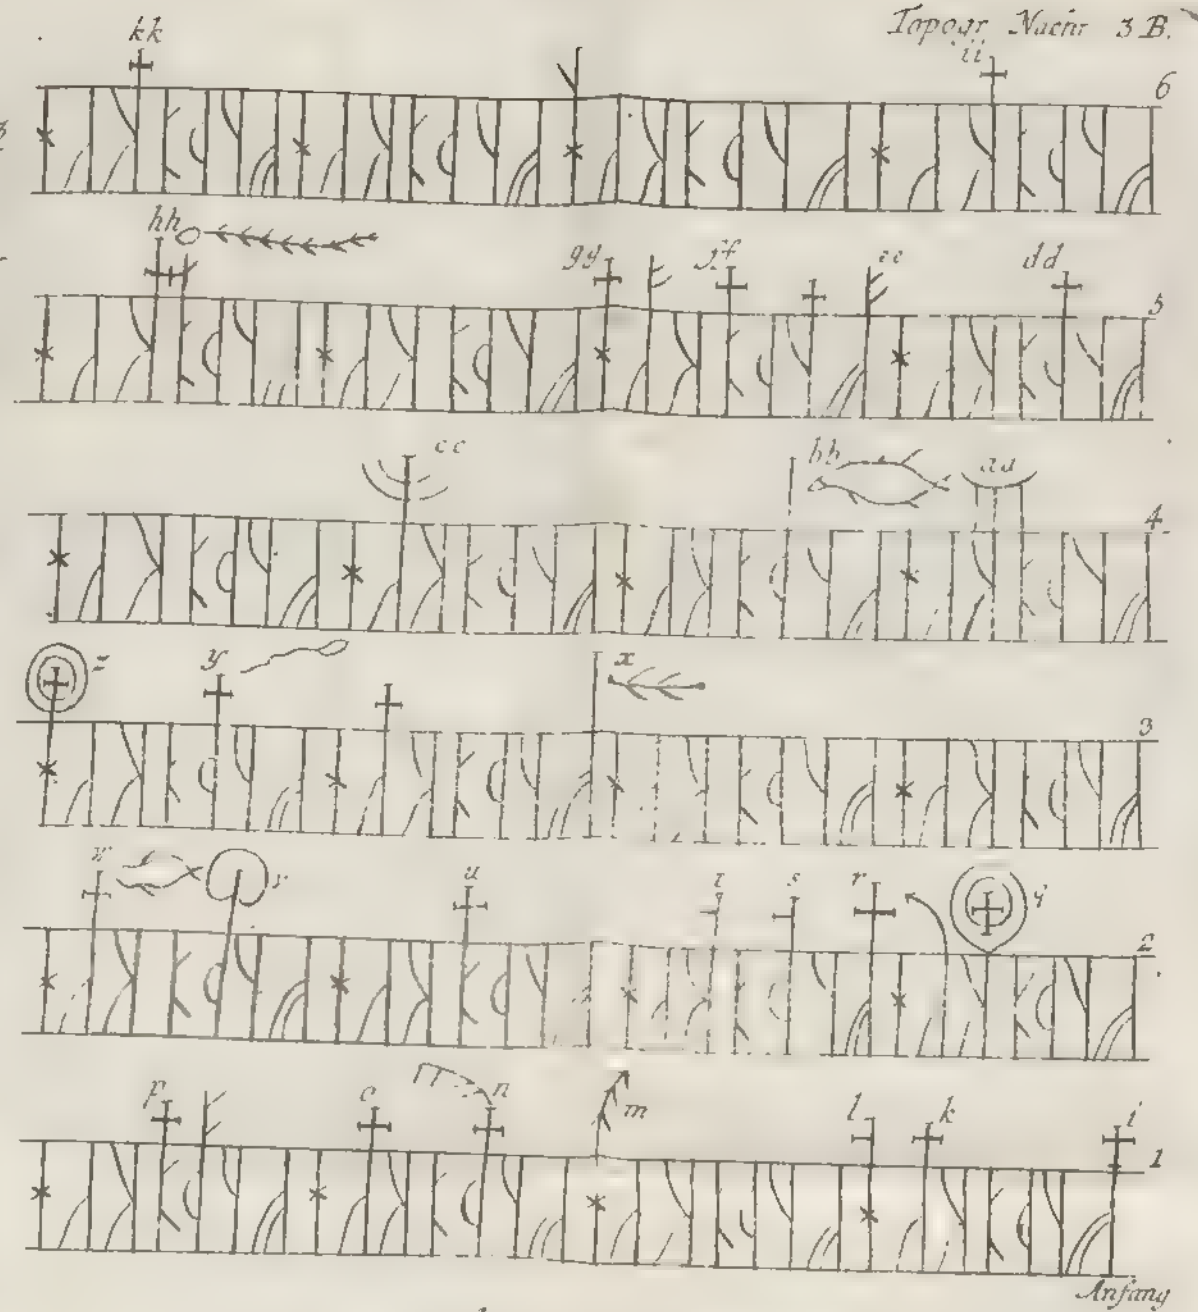 Topogr Nachr 3 B.
kk ii 6
hh gg ff ee dd 5
cc bb aa 4
z y x 3
w v u t s r q 2
p o n m l k i 1
Anfang